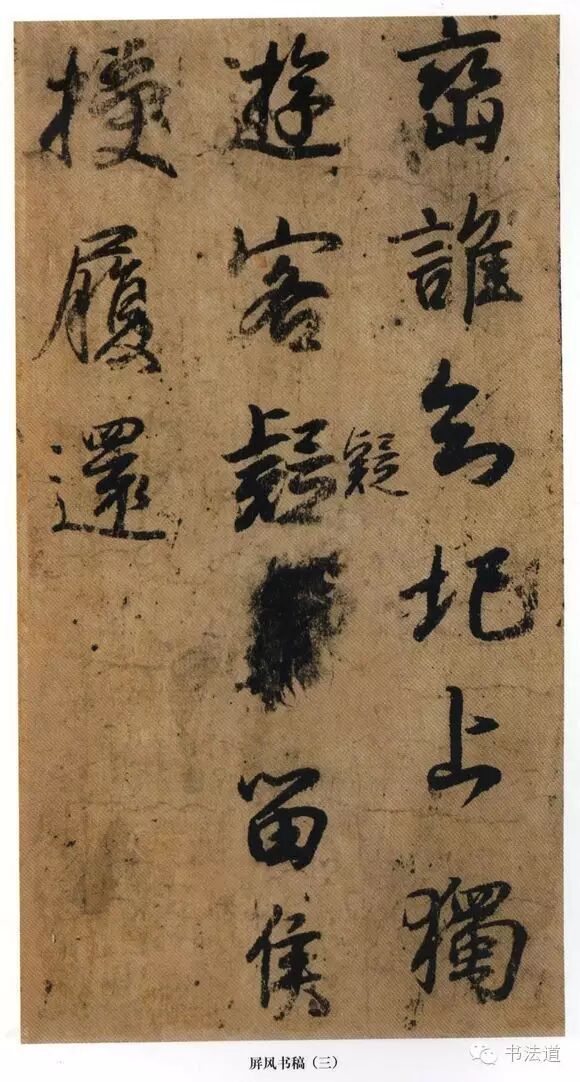 峦誰知圯上獨
遊客疑留侯
疑
授履還
屏风书稿（三）
书法道